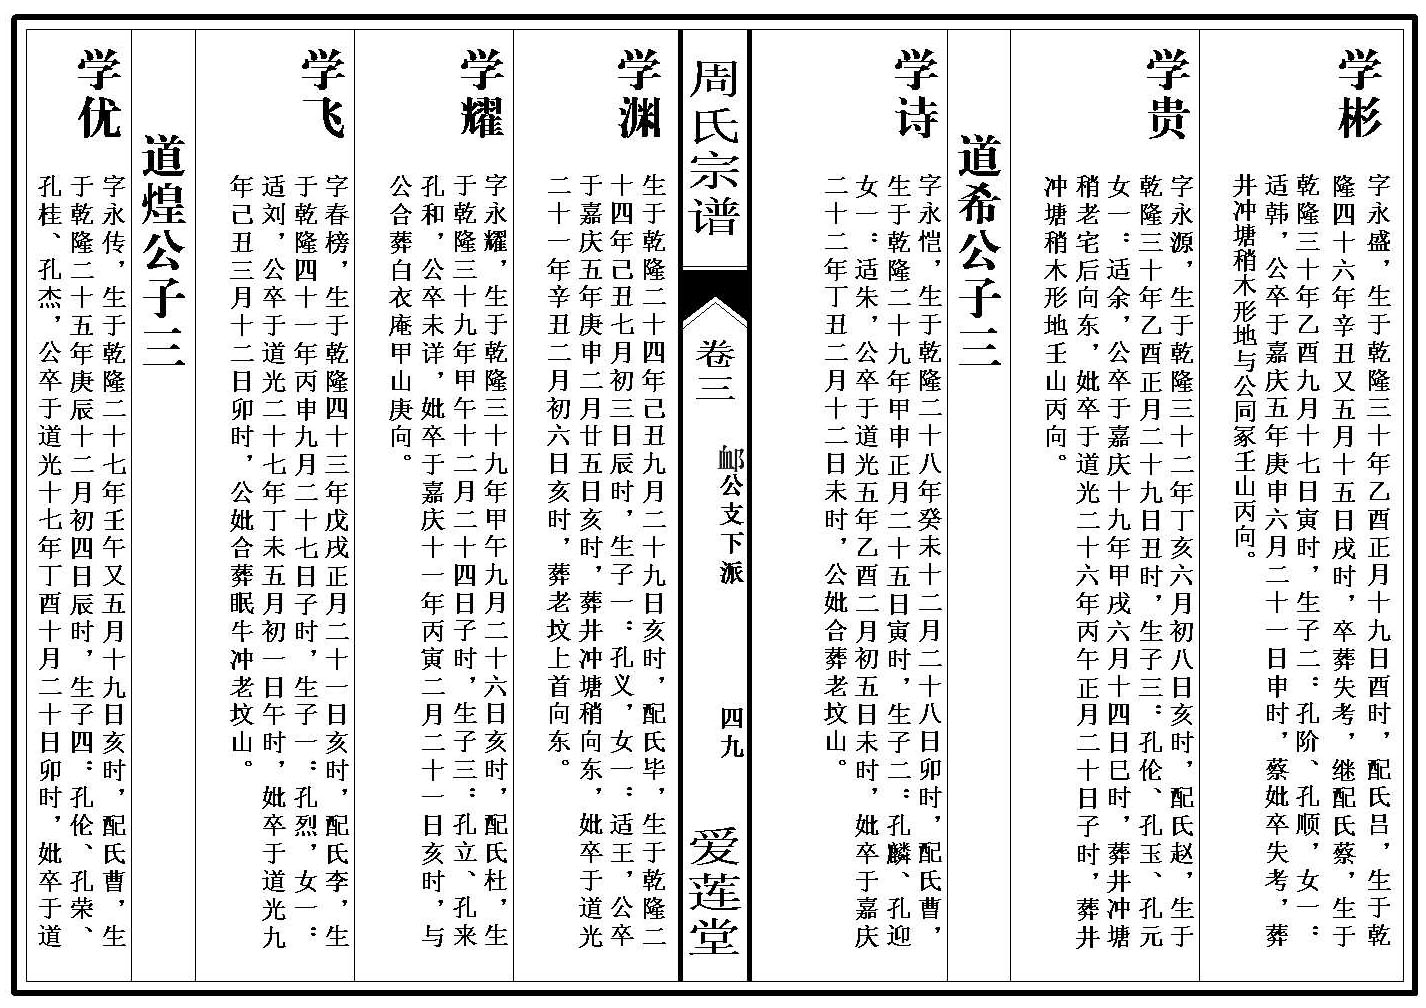 学彬
字永盛，生于乾隆三十年乙酉正月十九日酉时，配氏吕，生于乾
隆四十六年辛丑又五月十五日戌时，卒葬失考，继配氏蔡，生于
乾隆三十年乙酉九月十七日寅时，生子二：孔阶、孔顺，女一：
适韩，公卒于嘉庆五年庚申六月二十一日申时，蔡妣卒失考，葬
井冲塘稍木形地与公同冢壬山丙向。
学贵
字永源，生于乾隆三十二年丁亥六月初八日亥时，配氏赵，生于
乾隆三十年乙酉正月二十九日丑时，生子三：孔伦、孔玉、孔元
女一：适余，公卒于嘉庆十九年甲戌六月十四日巳时，葬井冲塘
稍老宅后向东，妣卒于道光二十六年丙午正月二十日子时，葬井
冲塘稍木形地壬山丙向。
道希公子三
学诗
字永恺，生于乾隆二十八年癸未十二月二十八日卯时，配氏曹，
生于乾隆二十九年甲申正月二十五日寅时，生子二：孔麟、孔迎
女一：适朱，公卒于道光五年乙酉二月初五日未时，妣卒于嘉庆
二十二年丁丑二月十二日未时，公妣合葬老坟山。
周氏宗谱
卷三
公支下派
四九
爱莲堂
学渊
生于乾隆二十四年己丑九月二十九日亥时，配氏毕，生于乾隆二
十四年己丑七月初三日辰时，生子一：孔义，女一：适王，公卒
于嘉庆五年庚申二月廿五日亥时，葬井冲塘稍向东，妣卒于道光
二十一年辛丑二月初六日亥时，葬老坟上首向东。
学耀
字永耀，生于乾隆三十九年甲午九月二十六日亥时，配氏杜，生
于乾隆三十九年甲午十二月二十四日子时，生子三：孔立、孔来
孔和，公卒未详，妣卒于嘉庆十一年丙寅二月二十一日亥时，与
公合葬白衣庵甲山庚向。
学飞
字春榜，生于乾隆四十三年戊戌正月二十一日亥时，配氏李，生
于乾隆四十一年丙申九月二十七日子时，生子一：孔烈，女一：
适刘，公卒于道光二十七年丁未五月初一日午时，妣卒于道光九
年己丑三月十二日卯时，公妣合葬眠牛冲老坟山。
道煌公子三
学优
字永传，生于乾隆二十七年壬午又五月十九日亥时，配氏曹，生
于乾隆二十五年庚辰十二月初四日辰时，生子四：孔伦、孔荣、
孔桂、孔杰，公卒于道光十七年丁酉十月二十日卯时，妣卒于道